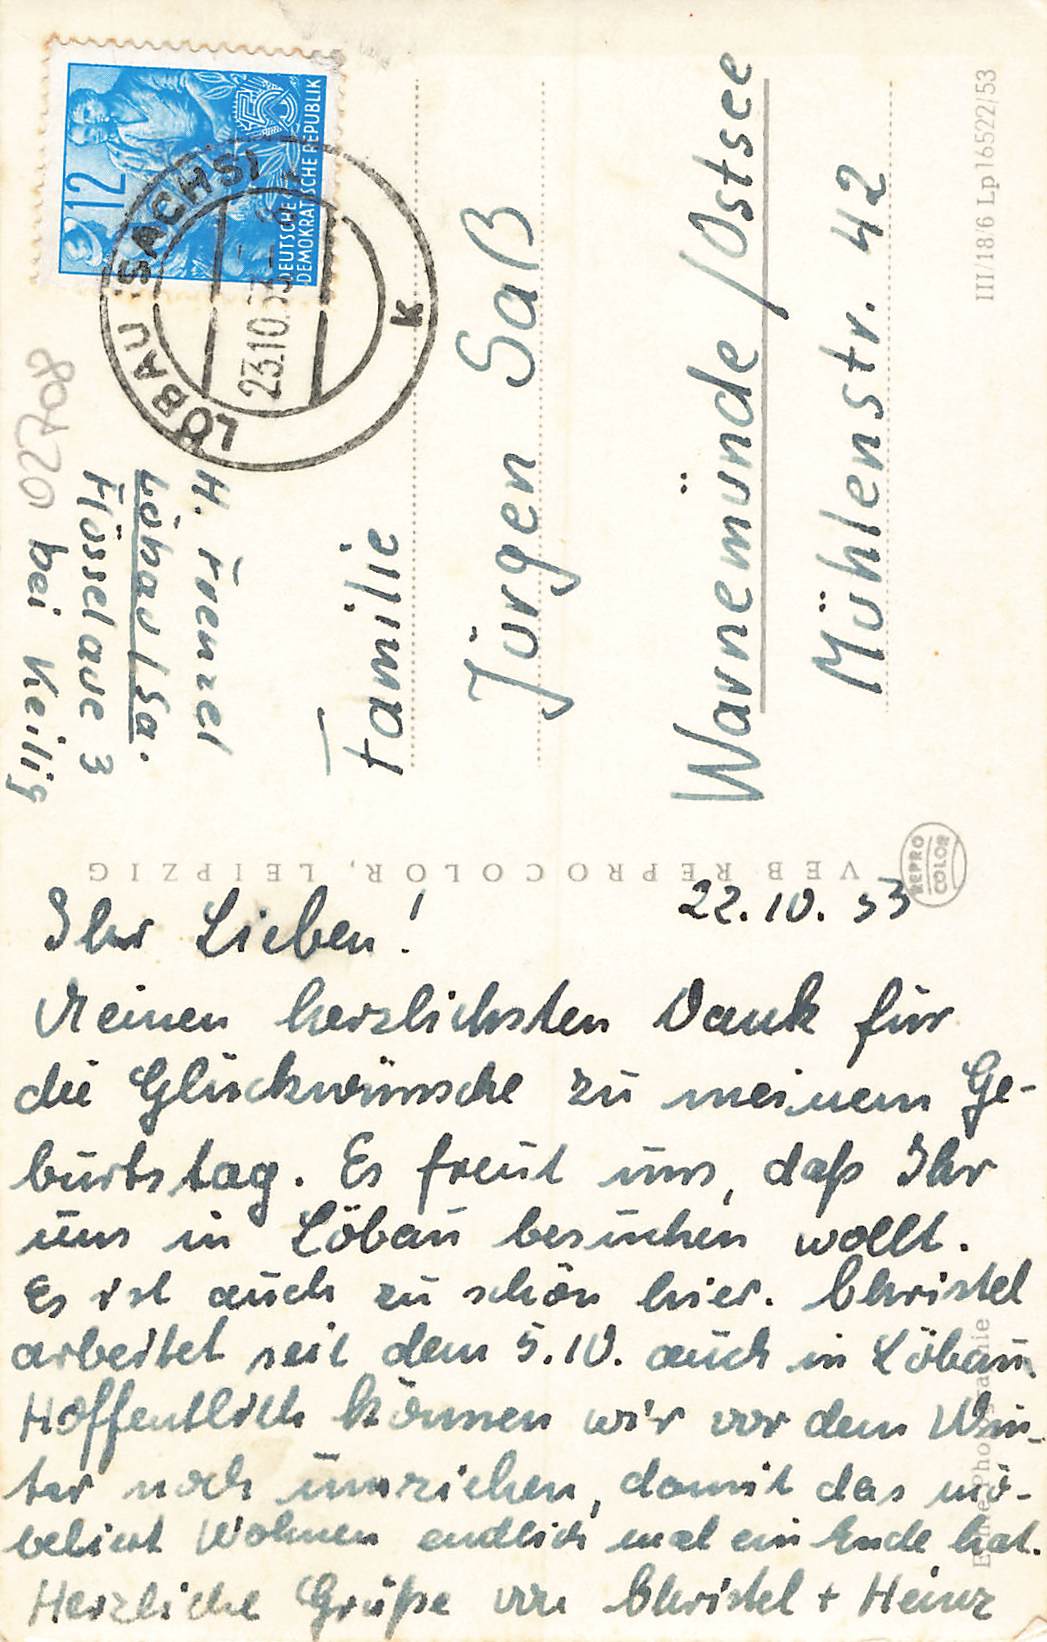 22.10.53
Ihr Lieben!
Meinen herzlichsten Dank für
die Glückwünsche zu meinem Ge-
burtstag. Es freut uns, daß Ihr
uns in Löbau besuchen wollt.
Es ist auch zu schön hier. Christel
arbeitet seit dem 5.10. auch in Löbau.
Hoffentlich können wir vor dem Win-
ter noch umziehen, damit das mö-
beliert Wohnen endlich mal ein Ende hat.
Herzliche Grüße von Christel + Heinz
Familie
Jürgen Saß
Warnemünde/Ostsee
Mühlenstr. 42
H. Frenzel
Löbau/Sa.
3
bei Keilig
807220
12
DEUTSCHE
DEMOKRATISCHE REPUBLIK
LÖBAU (SACHS)
23.10.53
K
VEB REPROCOLOR, LEIPZIG
REPRO
COLOR
III/18/6 Lp 16522/53